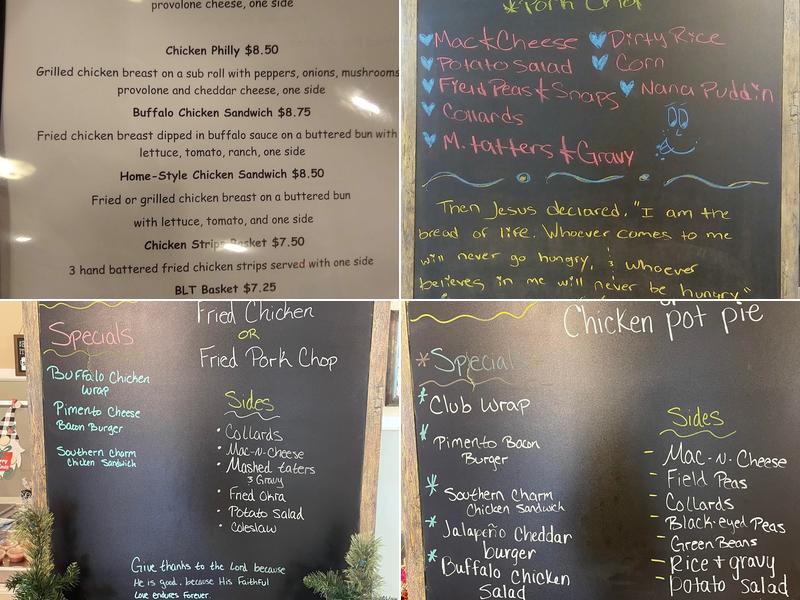 provolone cheese, one side
Chicken Philly $8.50
Grilled chicken breast on a sub roll with peppers, onions, mushrooms
provolone and cheddar cheese, one side
Buffalo Chicken Sandwich $8.75
Fried chicken breast dipped in buffalo sauce on a buttered bun with
lettuce, tomato, ranch, one side
Home-Style Chicken Sandwich $8.50
Fried or grilled chicken breast on a buttered bun
with lettuce, tomato, and one side
Chicken Strips Basket $7.50
3 hand battered fried chicken strips served with one side
BLT Basket $7.25
*Pork Chop
Mac & Cheese
Dirty Rice
Potato Salad
Corn
Field Peas & Snaps
Nana Puddin
Collards
M. tatters & Gravy
Then Jesus declared, "I am the
bread of life. Whoever comes to me
will never go hungry, & whoever
believes in me will never be hungry"
Fried Chicken
OR
Fried Pork Chop
Specials
Buffalo Chicken
Wrap
Pimento Cheese
Bacon Burger
Southern Charm
Chicken Sandwich
Sides
• Collards
• Mac-n-Cheese
• Mashed taters
& Gravy
• Fried Okra
• Potato Salad
• Coleslaw
Give thanks to the Lord because
He is good, because His Faithful
Love endures Forever.
Chicken pot pie
*Specials
* Club Wrap
* Pimento Bacon
Burger
* Southern Charm
Chicken Sandwich
* Jalapeño Cheddar
burger
* Buffalo Chicken
Salad
Sides
- Mac-n-Cheese
- Field Peas
- Collards
- Black-eyed Peas
- Green Beans
- Rice + gravy
- Potato Salad